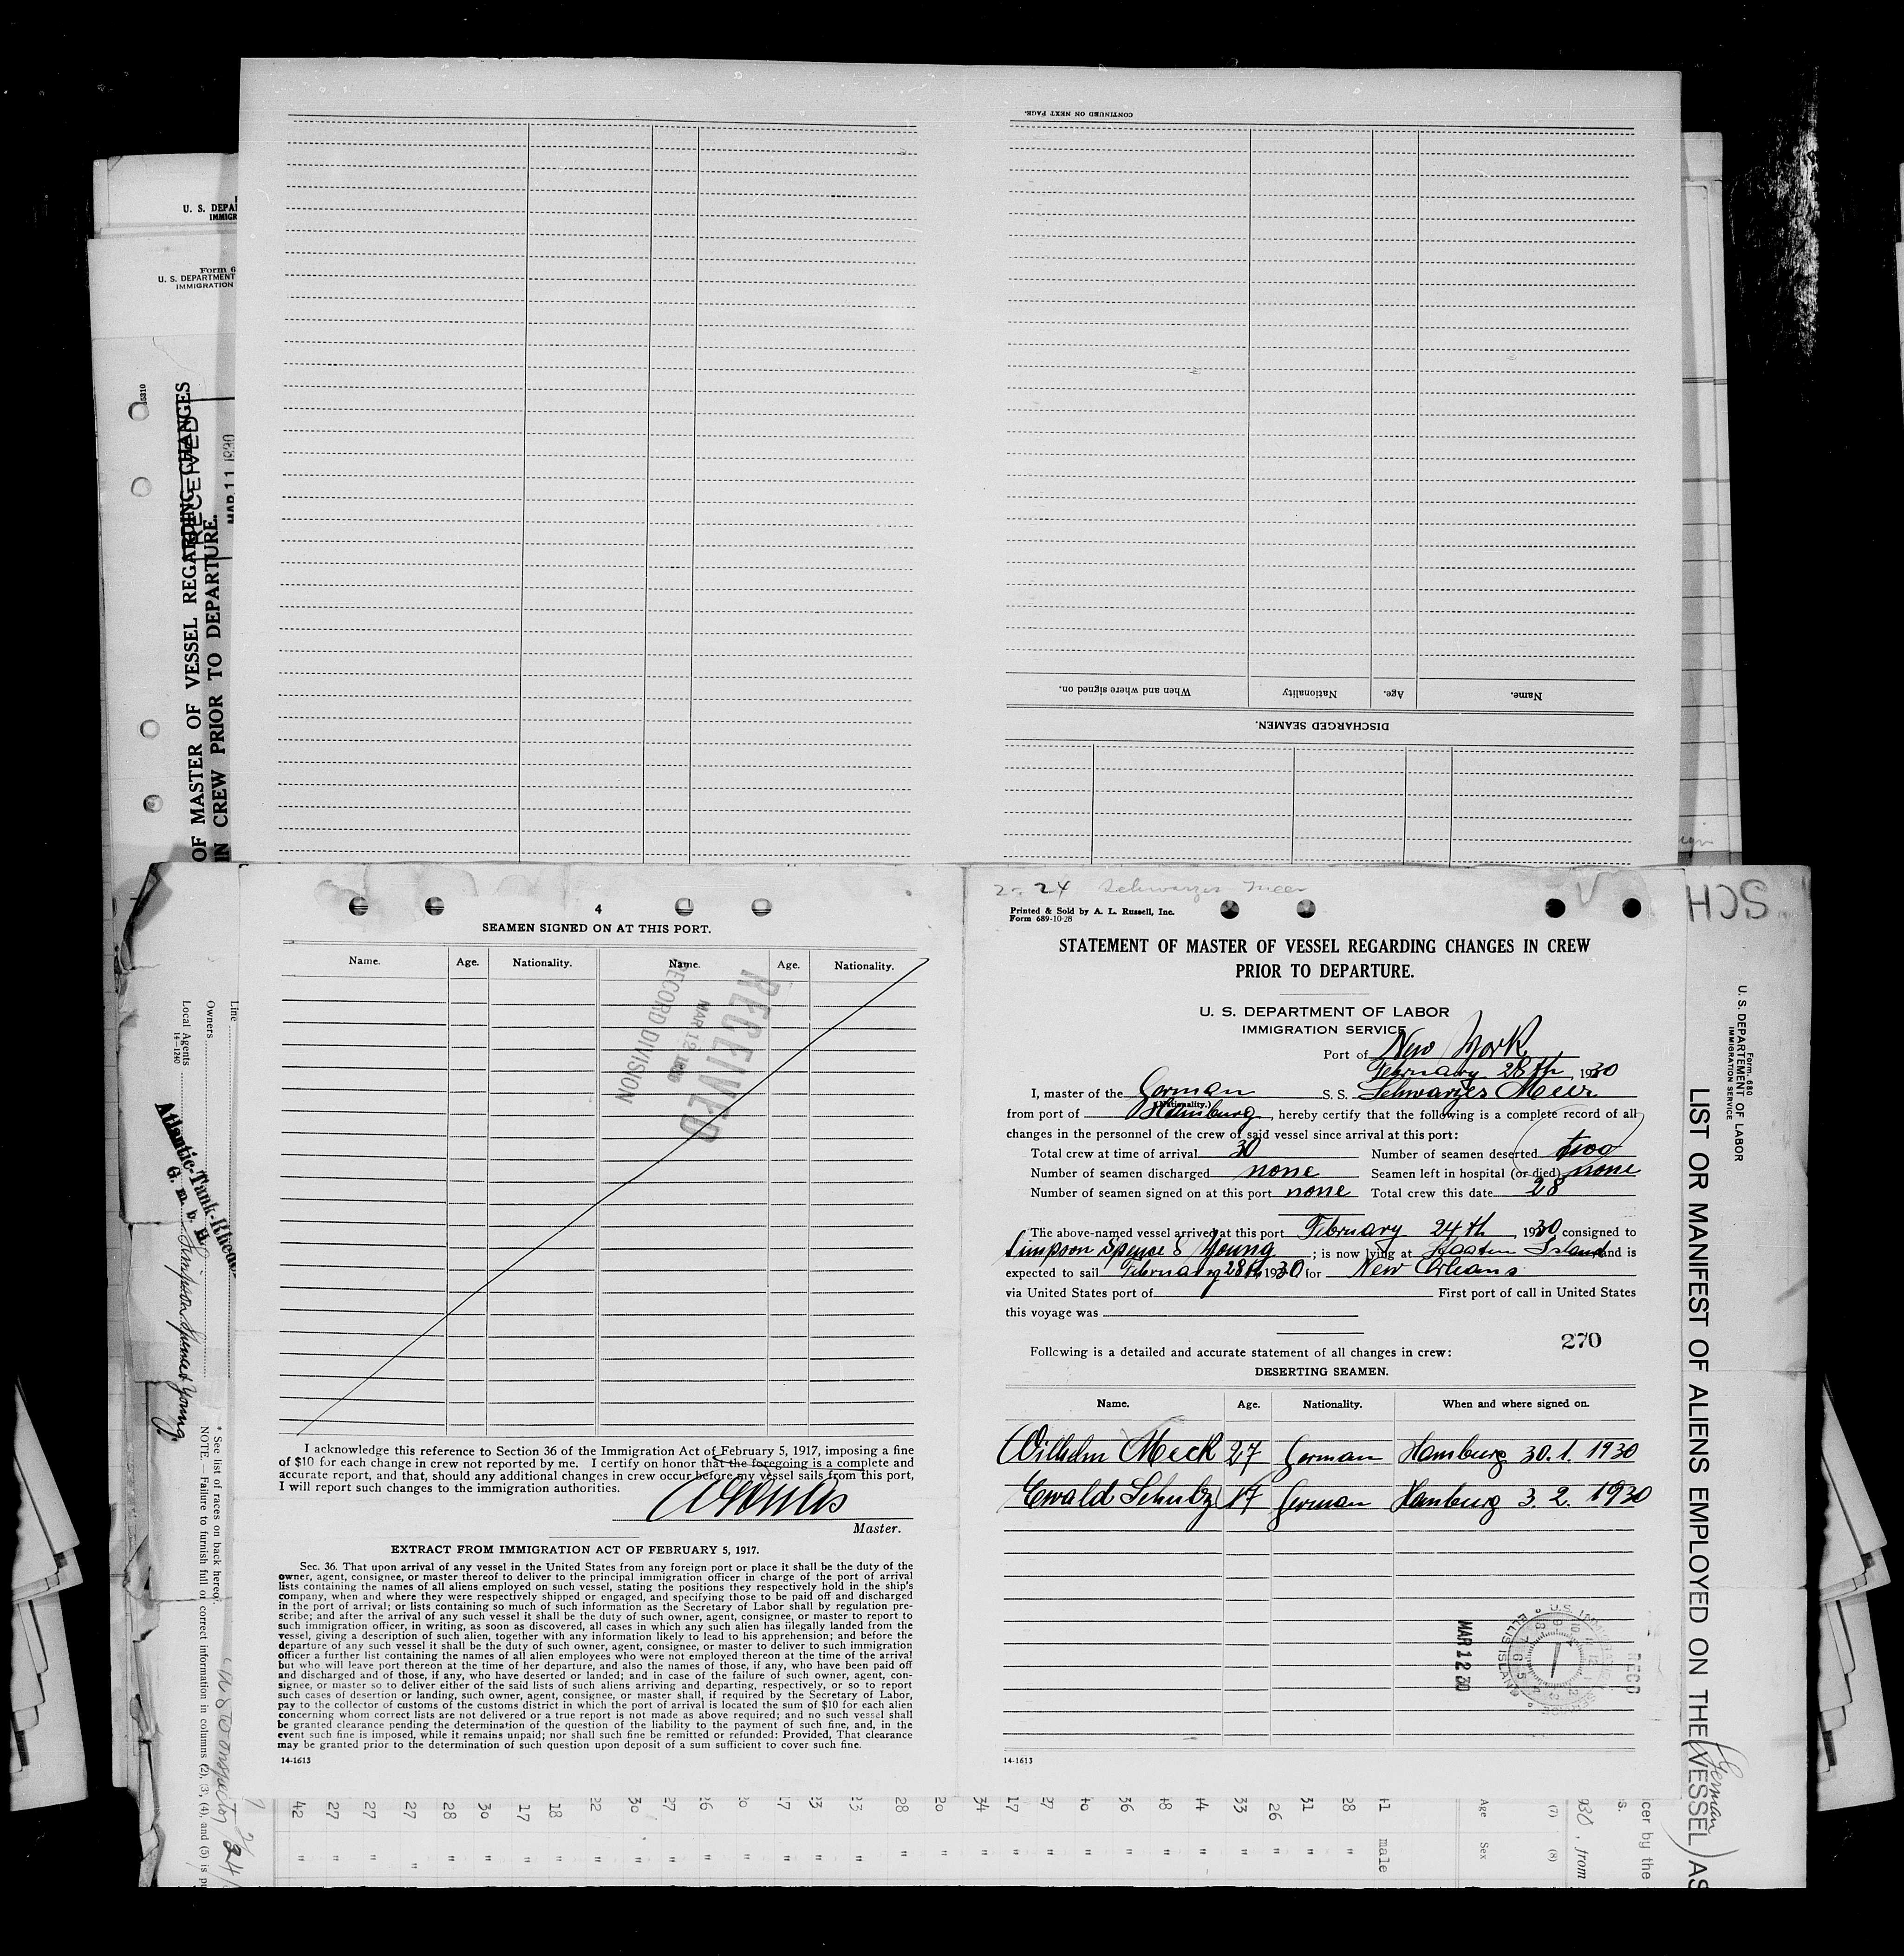 CONTINUED ON NEXT PAGE.
When and where signed on.
Nationality
Age.
Name.
DISCHARGED SEAMEN.
U. S. DEPAR
IMMIGR
Form 6
U. S. DEPARTMENT
IMMIGRATION
15310
OF MASTER OF VESSEL REGARDING CHANGES
IN CREW PRIOR TO DEPARTURE.
RECEIVED
MAR 11 1930
4
SEAMEN SIGNED ON AT THIS PORT.
Name. Age. Nationality. Name. Age. Nationality.
RECEIVED
MAR 12 1930
RECORD DIVISION
I acknowledge this reference to Section 36 of the Immigration Act of February 5, 1917, imposing a fine
of $10 for each change in crew not reported by me. I certify on honor that the foregoing is a complete and
accurate report, and that, should any additional changes in crew occur before my vessel sails from this port,
I will report such changes to the immigration authorities.
Master.
EXTRACT FROM IMMIGRATION ACT OF FEBRUARY 5, 1917.
Sec. 36. That upon arrival of any vessel in the United States from any foreign port or place it shall be the duty of the
owner, agent, consignee, or master thereof to deliver to the principal immigration officer in charge of the port of arrival
lists containing the names of all aliens employed on such vessel, stating the positions they respectively hold in the ship's
company, when and where they were respectively shipped or engaged, and specifying those to be paid off and discharged
in the port of arrival; or lists containing so much of such information as the Secretary of Labor shall by regulation pre-
scribe; and after the arrival of any such vessel it shall be the duty of such owner, agent, consignee, or master to report to
such immigration officer, in writing, as soon as discovered, all cases in which any such alien has illegally landed from the
vessel, giving a description of such alien, together with any information likely to lead to his apprehension; and before the
departure of any such vessel it shall be the duty of such owner, agent, consignee, or master to deliver to such immigration
officer a further list containing the names of all alien employees who were not employed thereon at the time of the arrival
but who will leave port thereon at the time of her departure, and also the names of those, if any, who have been paid off
and discharged and of those, if any, who have deserted or landed; and in case of the failure of such owner, agent, con-
signee, or master so to deliver either of the said lists of such aliens arriving and departing, respectively, or so to report
such cases of desertion or landing, such owner, agent, consignee, or master shall, if required by the Secretary of Labor,
pay to the collector of customs of the customs district in which the port of arrival is located the sum of $10 for each alien
concerning whom correct lists are not delivered or a true report is not made as above required; and no such vessel shall
be granted clearance pending the determination of the question of the liability to the payment of such fine, and, in the
event such fine is imposed, while it remains unpaid; nor shall such fine be remitted or refunded: Provided, That clearance
may be granted prior to the determination of such question upon deposit of a sum sufficient to cover such fine.
14-1613
24 Schwarzes Meer
Printed & Sold by A. L. Russell, Inc.
Form 689-10-28
STATEMENT OF MASTER OF VESSEL REGARDING CHANGES IN CREW
PRIOR TO DEPARTURE.
U. S. DEPARTMENT OF LABOR
IMMIGRATION SERVICE
Port of New York
February 28th, 1930
I, master of the German S. S. Schwarzes Meer
(Nationality.)
from port of Hamburg, hereby certify that the following is a complete record of all
changes in the personnel of the crew of said vessel since arrival at this port:
Total crew at time of arrival 30 Number of seamen deserted two
Number of seamen discharged none Seamen left in hospital (or died) none
Number of seamen signed on at this port none Total crew this date 28
The above-named vessel arrived at this port February 24th, 1930 consigned to
Simpson Spence & Young; is now lying at Staaten Island and is
expected to sail February 28th, 1930 for New Orleans
via United States port of First port of call in United States
this voyage was
270
Following is a detailed and accurate statement of all changes in crew:
DESERTING SEAMEN.
Name. Age. Nationality. When and where signed on.
Wilhelm Meck 27 German Hamburg 30. 1. 1930
Ewald Schulz 17 German Hamburg 3. 2. 1930
MAR 12 30
REC'D
U.S. IMMIGRATION SERVICE
ELLIS ISLAND
14-1613
Line
Owners
Local Agents
14-1240
Atlantic-Tank-Rheder
G. m. b. H.
Simpson, Spence & Young.
* See list of races on back hereof.
NOTE.—Failure to furnish full or correct information in columns (2), (3), (4), and (5) is pu
SCH
Form 680
U. S. DEPARTMENT OF LABOR
IMMIGRATION SERVICE
LIST OR MANIFEST OF ALIENS EMPLOYED ON THE VESSEL AS
(German)
icer by the
930, from
(7) (8)
Age Sex
41 male
28 "
31 "
26 "
33 "
44 "
48 "
36 "
40 "
27 "
17 "
34 "
20 "
28 "